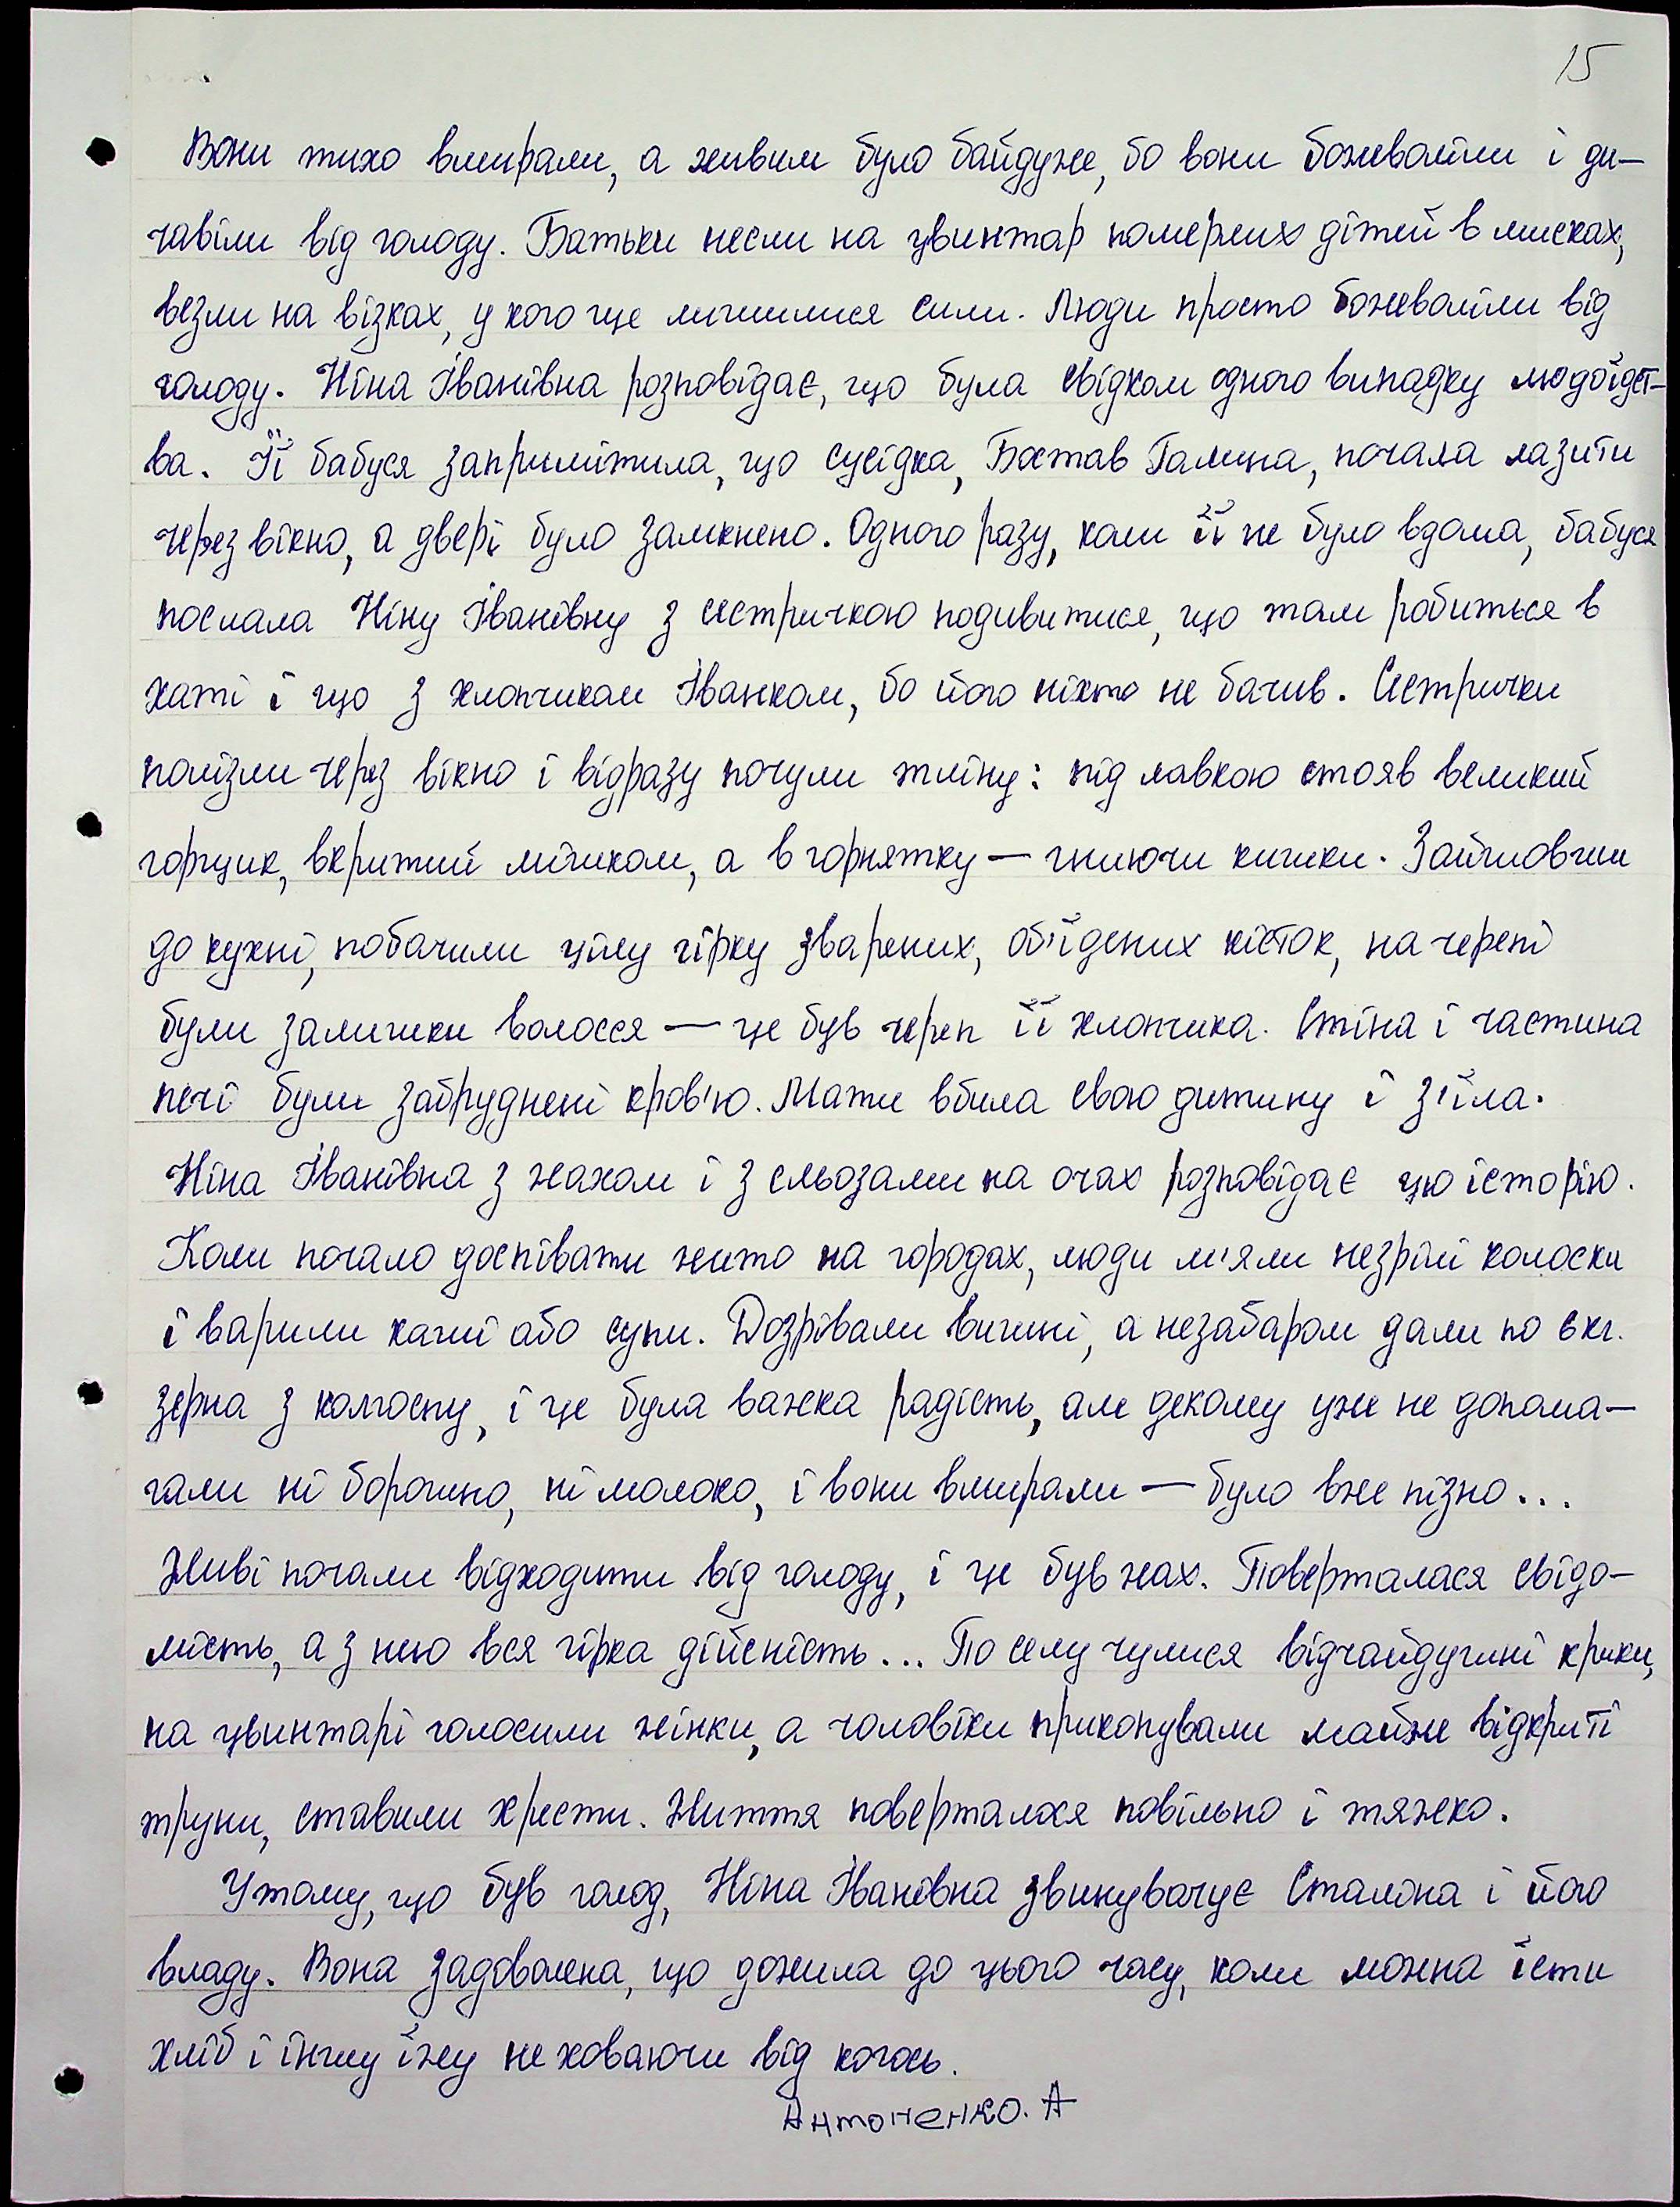 15
Вони тихо вмирали, а живим було байдуже, бо вони божеволіли і ди-
чавіли від голоду. Батьки несли на цвинтар померлих дітей в мисках,
везли на візках, у кого ще лишилися сили. Люди просто божеволіли від
голоду. Ніна Іванівна розповідає, що була свідком одного випадку людоїдст-
ва. Її бабуся запримітила, що сусідка, Бостав Галина, почала лазити
через вікно, а двері було замкнено. Одного разу, коли її не було вдома, бабуся
послала Ніну Іванівну з сестричкою подивитися, що там робиться в
хаті і що з хлопчиком Іванком, бо його ніхто не бачив. Сестрички
полізли через вікно і відразу почули тліну: під лавкою стояв великий
горщик, вкритий мішком, а в горнятку — гниючи кишки. Зайшовши
до кухні, побачили цілу гірку зварених, об'їдених кісток, на черепі
були залишки волосся — це був череп її хлопчика. Стіна і частина
печі були забруднені кров'ю. Мати вбила свою дитину і з'їла.
Ніна Іванівна з жахом і з сльозами на очах розповідає цю історію.
Коли почало доспівати жито на городах, люди м'яли незрілі колоски
і варили каші або супи. Дозрівали вишні, а незабаром дали по 6 кг.
зерна з колгоспу, і це була важка радість, але декому уже не допома-
гали ні борошно, ні молоко, і вони вмирали — було вже пізно...
Живі почали відходити від голоду, і це був жах. Поверталася свідо-
мість, а з нею вся гірка дійсність... По селу чулися відчайдушні крики,
на цвинтарі голосили жінки, а чоловіки прикопували майже відкриті
труни, ставили хрести. Життя поверталося повільно і тяжко.
У тому, що був голод, Ніна Іванівна звинувачує Сталіна і його
владу. Вона задоволена, що дожила до цього часу, коли можна їсти
хліб і іншу їжу не ховаючи від когось.
Антоненко. А